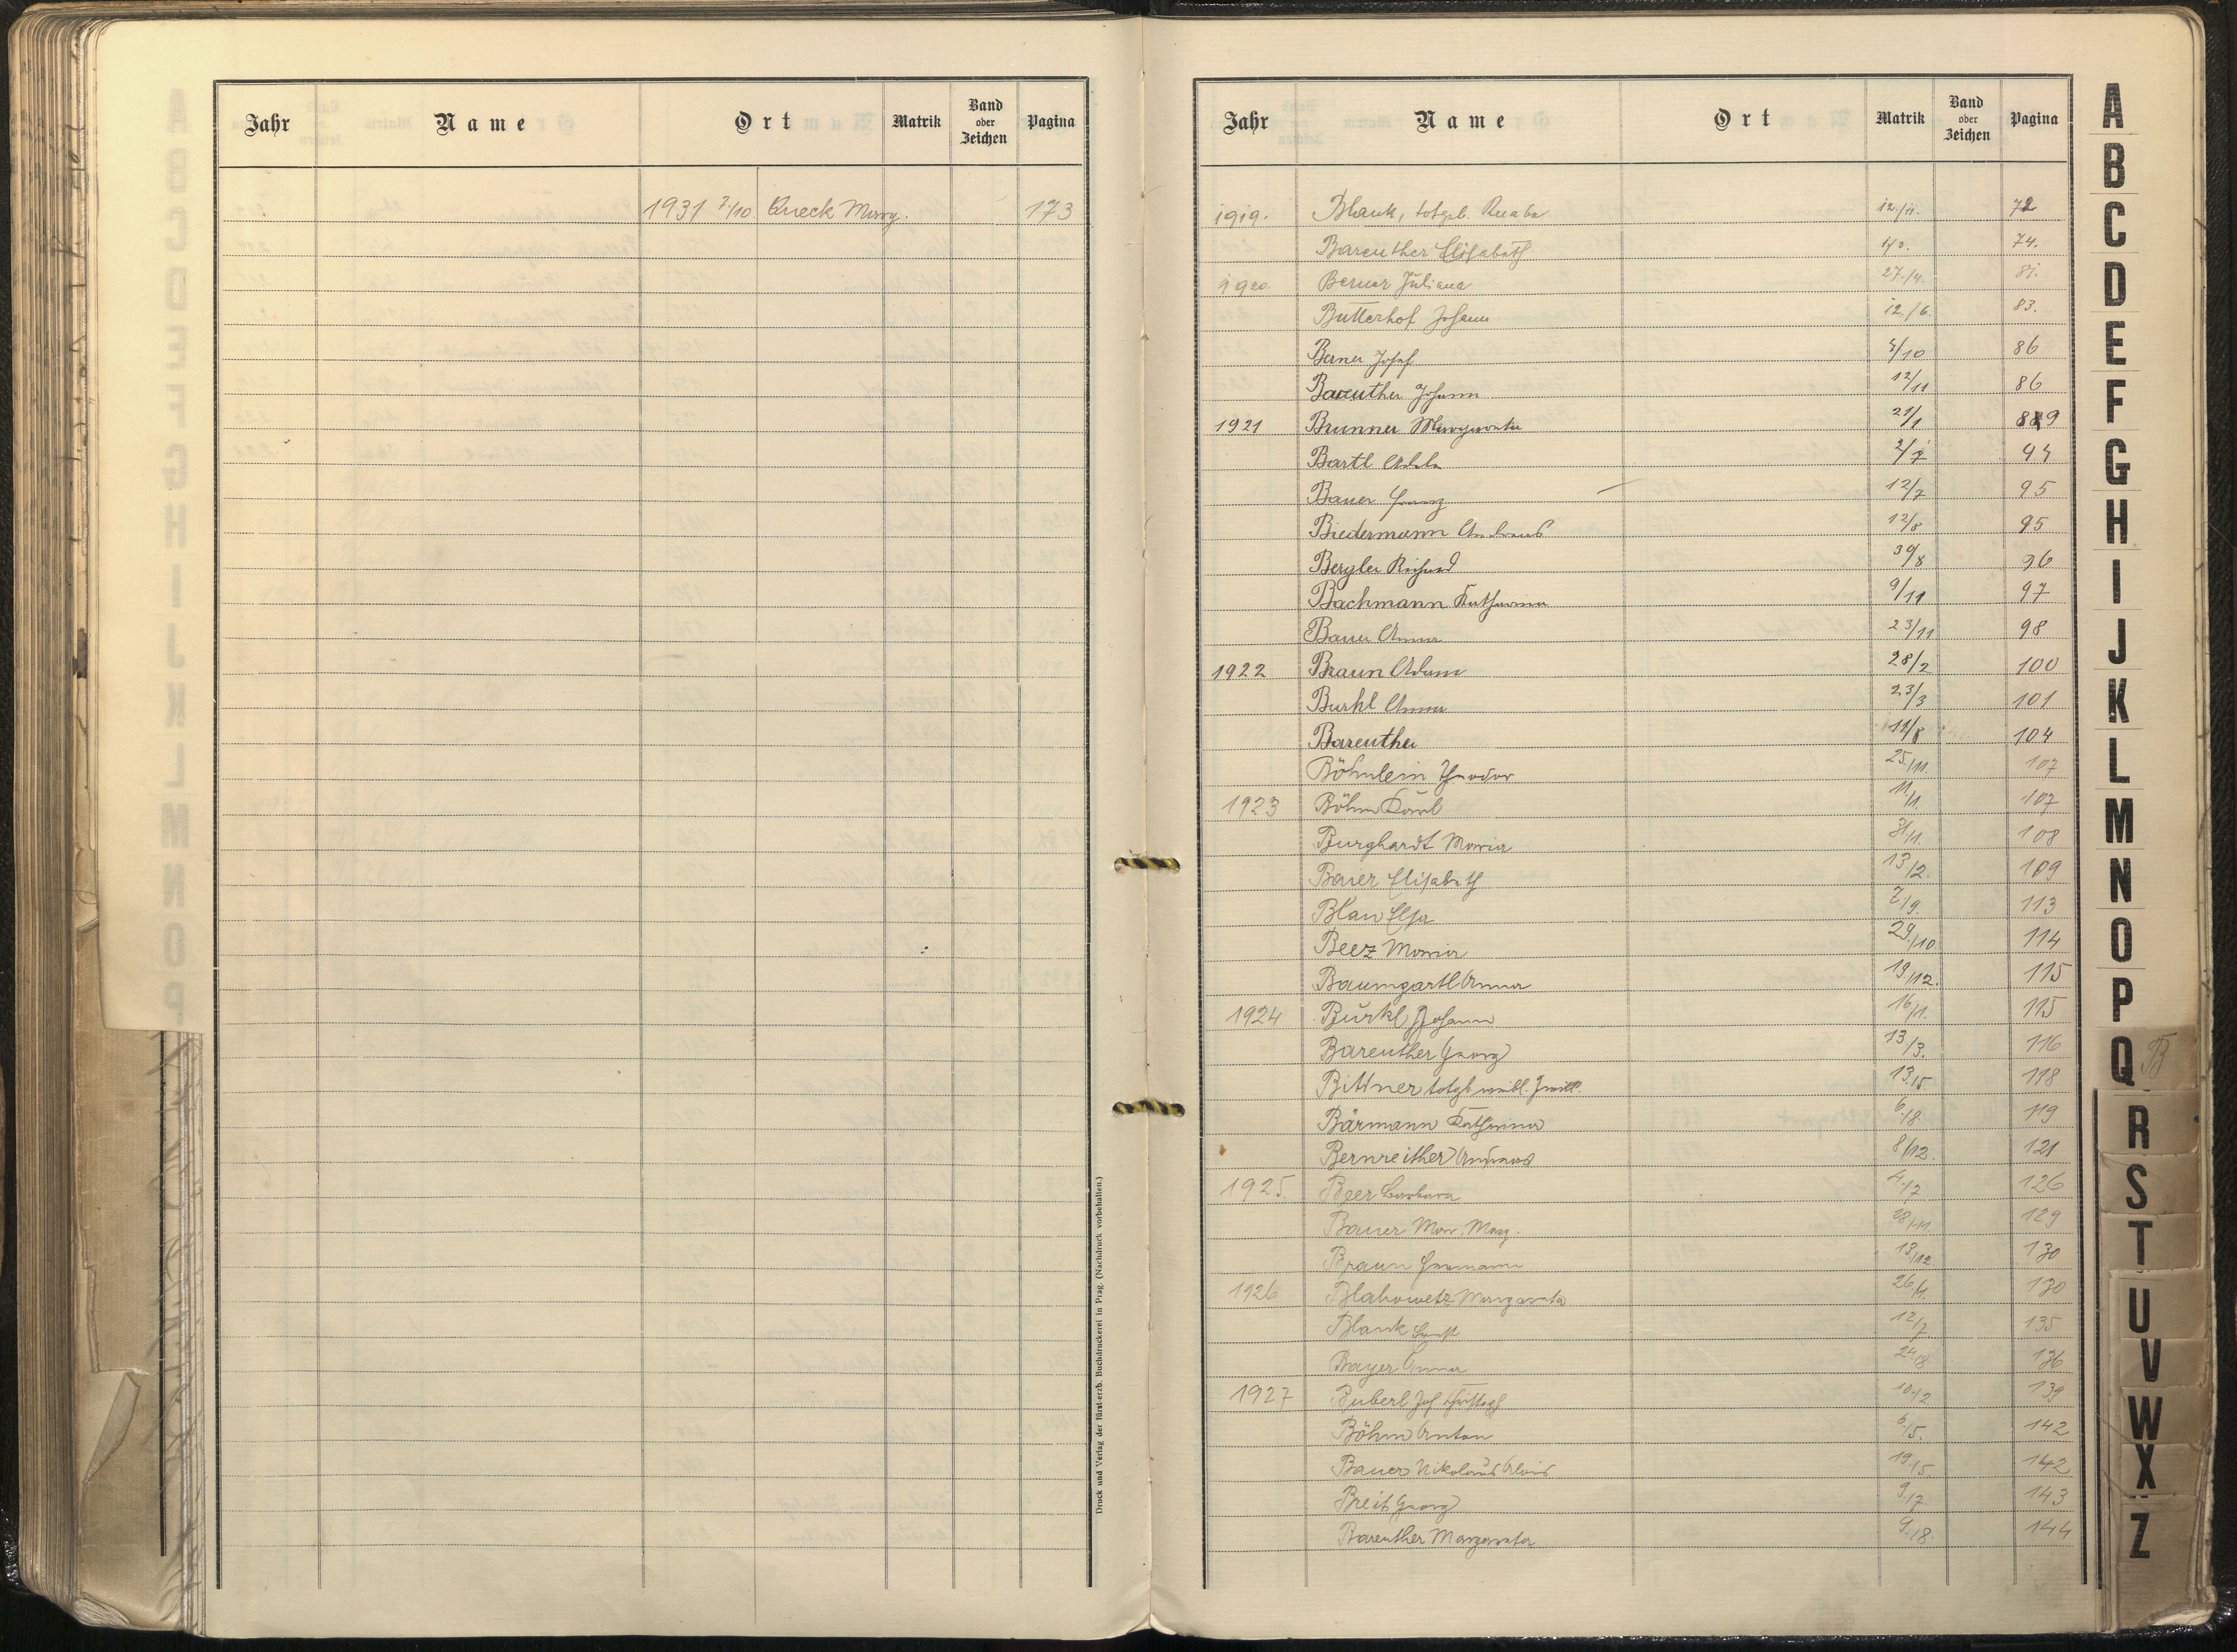 Jahr Name Ort Matrik Band oder Zeichen Pagina
1931 7./10. Queck Marg. 173
Druck und Verlag der fürst-erzb. Buchdruckerei in Prag. (Nachdruck vorbehalten.)
Jahr Name Ort Matrik Band oder Zeichen Pagina
1919. Blank, totgeb. Knabe 12./11. 72
Bareuther Elisabeth 74.
1920. Berner Juliana 27./4. 81.
Butterhof Johann 12./6. 83.
Berner Josef /10 86
Bareuther Johann 12/11 86
1921 Brunner Margareta 21/1 89
Bartl Adele 2/7 94
Bauer Franz 12/7 95
Biedermann Andreas 12/8 95
Bergler Richard 30/8 96
Bachmann Katharina 9/11 97
Bauer Anna 23/11 98
1922 Braun Adam 28/2 100
Burkl Anna 23/3 101
Bareuther 104
Böhnlein Theodor 25./11. 107
1923 Böhm Karl 11./1. 107
Burghardt Maria 31./1. 108
Bauer Elisabeth 13./2. 109
Blau Elsa 7./9. 113
Beez Maria 29./10. 114
Baumgartl Anna 19./12. 115
1924 Burkl Johann 16./1. 115
Bareuther Georg 13./3. 116
Bittner totgb. weibl. Zwill. 13./5. 118
Bärmann Katharina 6./8. 119
Bernreither Andreas 8/12. 121
1925. Beer Barbara 4./7. 126
Bauer Mar. Marg. 28/11 129
Braun Hermann 13./12. 130
1926 Blahowetz Margareta 26./1. 130
Blank Ernst 12/7. 135
Bayer Anna 24./8. 136
1927 Buberl Jos. Christoph 10./2 139
Böhm Anton 6./5. 142
Bauer Nikolaus Alois 19./5. 142
Breit Georg 9./7. 143
Bareuther Margareta 9./8. 144
A
B
C
D
E
F
G
H
I
J
K
L
M
N
O
P
Q B
R
S
T
U
V
W
X
Z